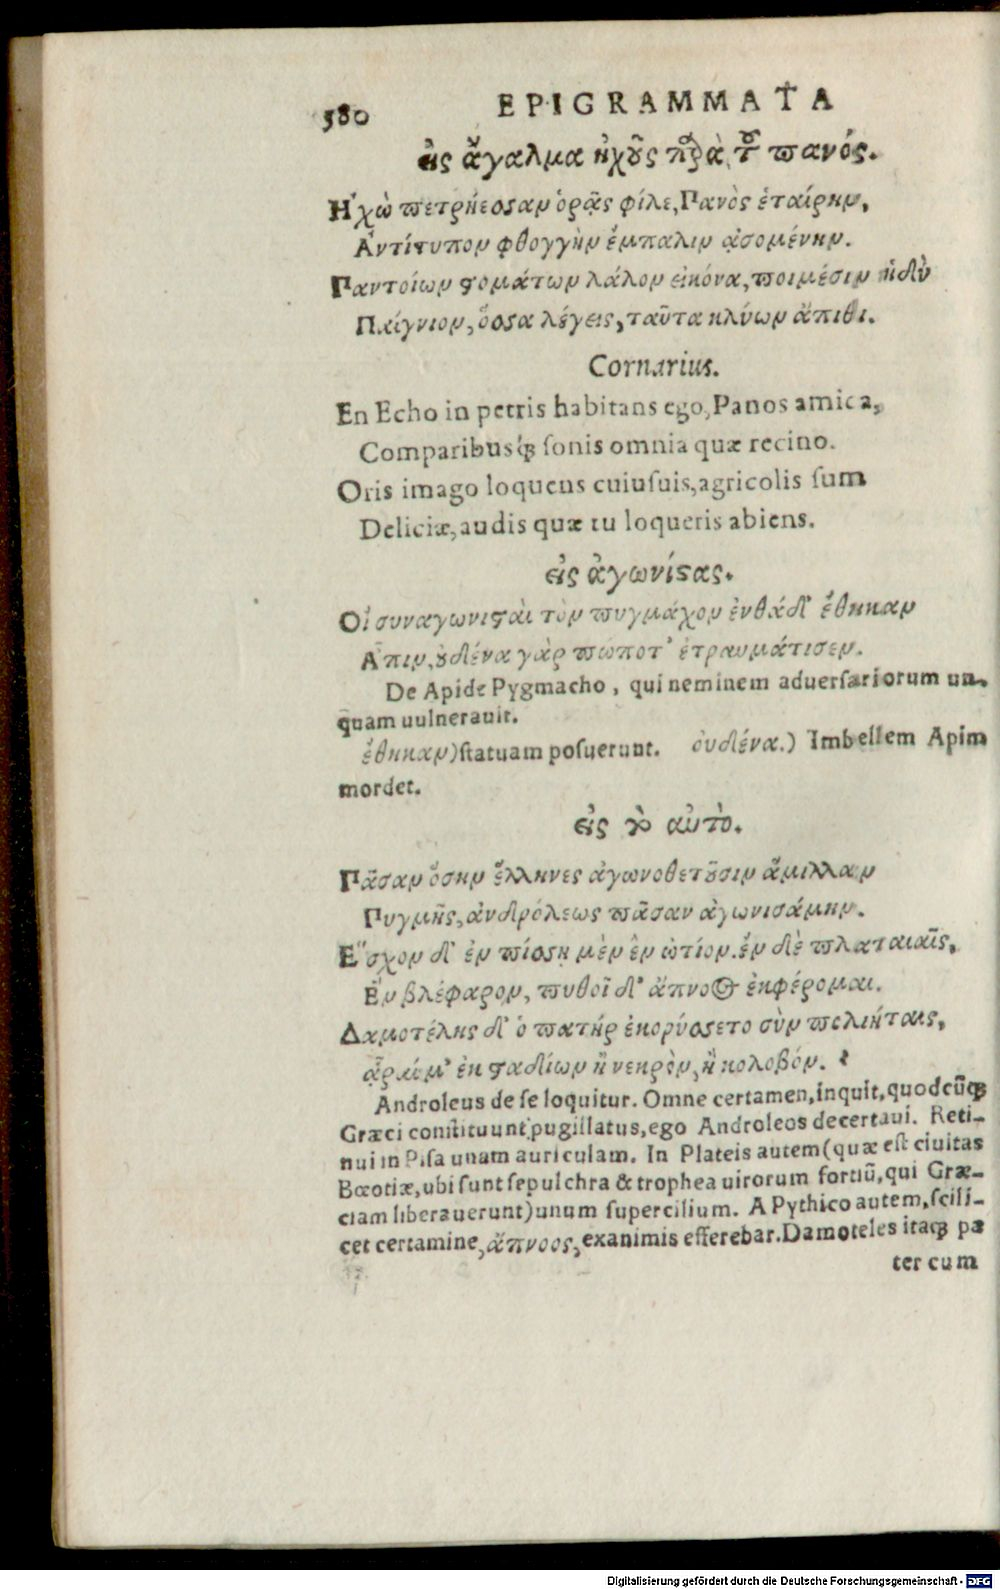 380 EPIGRAMMATA
εἰς ἄγαλμα ἠχοῦς παρὰ τοῦ πανός.
Ηχὼ πετρήεσσαν ὁρᾷς φίλε, Πανὸς ἑταίρην,
Ἀντίτυπον φθογγὴν ἔμπαλιν ᾀσομένην.
Παντοίων στομάτων λάλον εἰκόνα, ποιμέσιν ἡδὺ
Παίγνιον, ὅσσα λέγεις, ταῦτα κλύων ἄπιθι.
Cornarius.
En Echo in petris habitans ego, Panos amica,
Comparibusq́; sonis omnia quæ recino.
Oris imago loquens cuiusuis, agricolis sum
Deliciæ, audis quæ tu loqueris abiens.
εἰς ἀγωνίστας.
Οἱ συναγωνισταὶ τὸν πυγμάχον ἐνθάδ' ἔθηκαν
Ἀπιν, οὐδένα γὰρ πώποτ' ἐτραυμάτισεν.
De Apide Pygmacho, qui neminem aduersariorum un-
quam uulnerauit.
ἔθηκαν) statuam posuerunt. οὐδένα.) Imbellem Apim
mordet.
εἰς τὸ αὐτό.
Πᾶσαν ὅσην ἕλληνες ἀγωνοθετοῦσιν ἅμιλλαν
Πυγμῆς, ἀνδρόλεως πᾶσαν ἀγωνισάμην.
Ἔσχον δ' ἐν πίσσῃ μὲν ἓν ὠτίον. ἓν δὲ πλαταιαῖς,
Ἓν βλέφαρον, πυθοῖ δ' ἄπνοος ἐκφέρομαι.
Δαμοτέλης δ' ὁ πατήρ ἐκορύσσετο σὺν πολιήταις,
ἆραί μ' ἐκ σταδίων ἢ νεκρὸν, ἢ κολοβόν.
Androleus de se loquitur. Omne certamen, inquit, quodcũq;
Græci constituunt pugillatus, ego Androleos decertaui. Reti-
nui in Pisa unam auriculam. In Plateis autem (quæ est ciuitas
Bœotiæ, ubi sunt sepulchra & trophea uirorum fortiũ, qui Græ-
ciam liberauerunt) unum supercilium. A Pythico autem, scili-
cet certamine, ἄπνοος, exanimis efferebar. Damoteles itaq; pa
ter cum
Digitalisierung gefördert durch die Deutsche Forschungsgemeinschaft - DFG